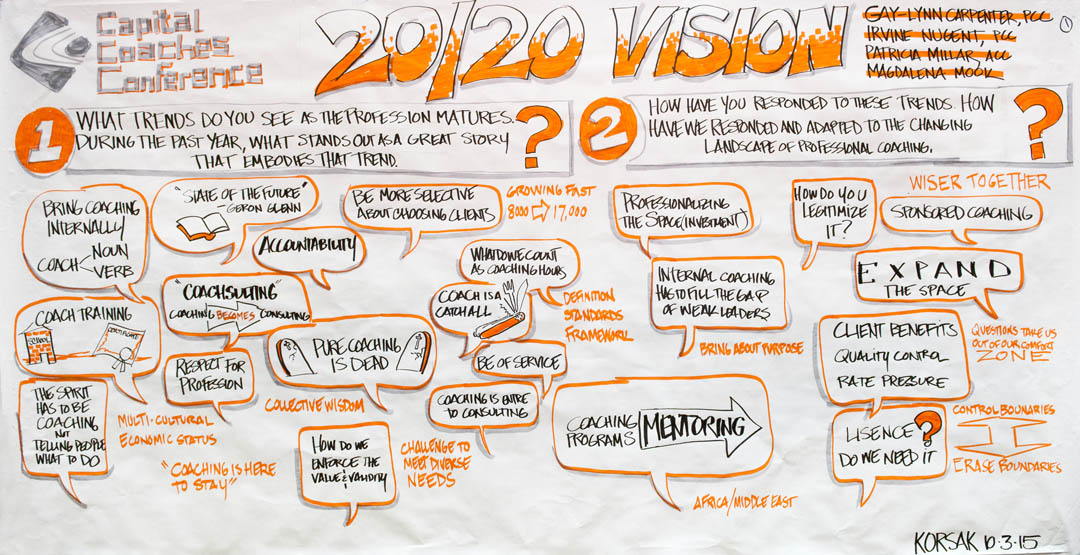 Capital
Coaches
Conference
20/20 VISION
GAY-LYNN CARPENTER, PCC
IRVINE NUGENT, PCC
PATRICIA MILLAR, ACC
MAGDALENA MOOK
1
1
WHAT TRENDS DO YOU SEE AS THE PROFESSION MATURES.
DURING THE PAST YEAR, WHAT STANDS OUT AS A GREAT STORY
THAT EMBODIES THAT TREND.
?
2
HOW HAVE YOU RESPONDED TO THESE TRENDS. HOW
HAVE WE RESPONDED AND ADAPTED TO THE CHANGING
LANDSCAPE OF PROFESSIONAL COACHING.
?
BRING COACHING
INTERNALLY
COACH < NOUN
VERB
"STATE OF THE FUTURE"
- GERON GLENN
ACCOUNTABILITY
BE MORE SELECTIVE
ABOUT CHOOSING CLIENTS
GROWING FAST
8000 ⇨ 17,000
"COACHSULTING"
COACHING BECOMES CONSULTING
WHAT DO WE COUNT
AS COACHING HOURS
COACH IS A
CATCH ALL
DEFINITION
STANDARDS
FRAMEWORK
COACH TRAINING
SCHOOL
CERTIFICATE
RESPECT FOR
PROFESSION
PURE COACHING
IS DEAD
BE OF SERVICE
COACHING IS ENTRE
TO CONSULTING
THE SPIRIT
HAS TO BE
COACHING
NOT
TELLING PEOPLE
WHAT TO DO
MULTI-CULTURAL
ECONOMIC STATUS
"COACHING IS HERE
TO STAY"
COLLECTIVE WISDOM
HOW DO WE
ENFORCE THE
VALUE & VALIDITY
CHALLENGE TO
MEET DIVERSE
NEEDS
PROFESSIONALIZING
THE SPACE (INVESTMENT)
HOW DO YOU
LEGITIMIZE
IT?
WISER TOGETHER
SPONSORED COACHING
INTERNAL COACHING
HAS TO FILL THE GAP
OF WEAK LEADERS
BRING ABOUT PURPOSE
EXPAND
THE SPACE
CLIENT BENEFITS
QUALITY CONTROL
RATE PRESSURE
QUESTIONS TAKE US
OUT OF OUR COMFORT
ZONE
COACHING
PROGRAMS
MENTORING
AFRICA/MIDDLE EAST
LISENCE?
DO WE NEED IT
CONTROL BOUNARIES
ERASE BOUNDARIES
KORSAK 10·3·15